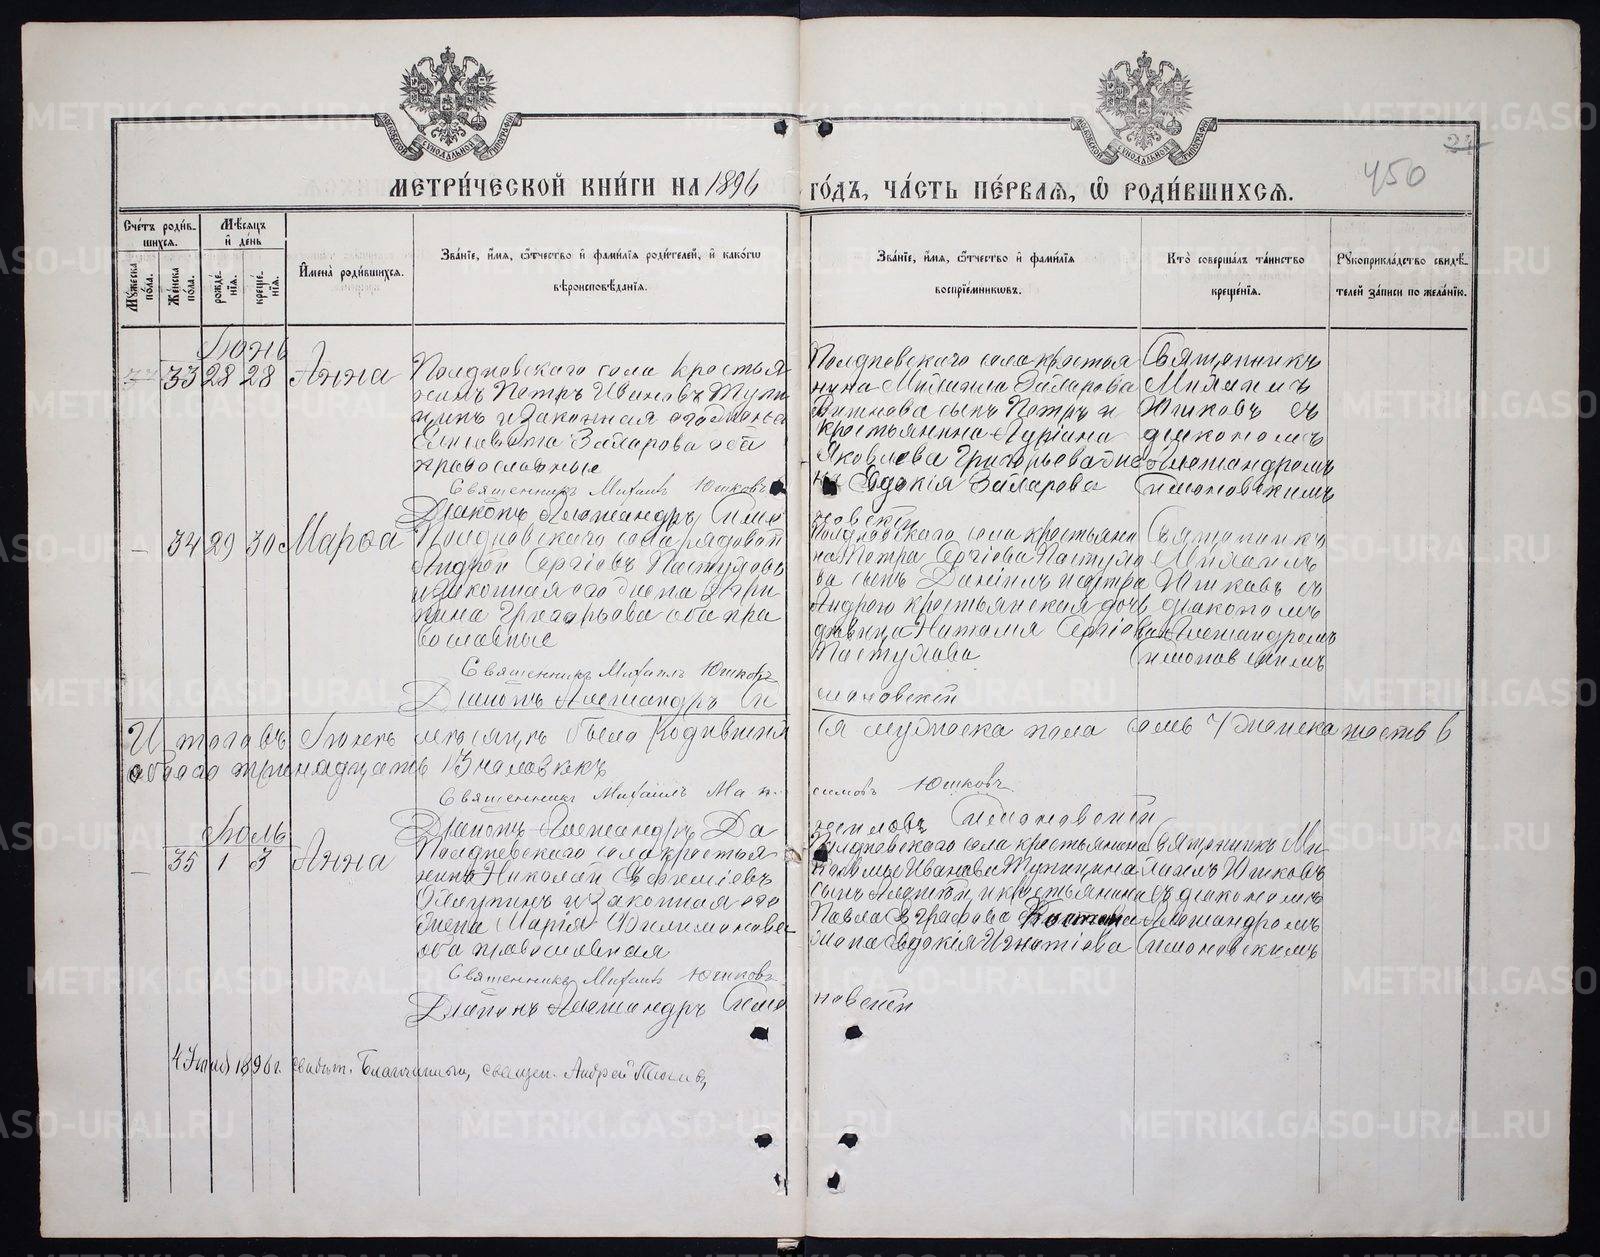 МЕТРИ́ЧЕСКОЙ КНИ́ГИ НА 1896 ГО́ДЪ, ЧА́СТЬ ПЕ́РВАѦ, Ѡ РОДИ́ВШИХСѦ.
450
Сче́тъ роди́в-
шихсѧ.
Мѣ́сѧцъ
и҆ де́нь
Му́жеска по́ла.
Же́нска по́ла.
рожде́-
нїѧ.
креще́-
нїѧ.
И҆мена̀ роди́вшихсѧ.
Зва́нїе, и҆́мѧ, ѻ҆́тчество и҆ фами́лїѧ роди́телей, и҆ како́гѡ
вѣроисповѣ́данїѧ.
Зва́нїе, и҆́мѧ, ѻ҆́тчество и҆ фами́лїѧ
воспрїе́мникѡвъ.
Кто̀ соверша́лъ та́инство
креще́нїѧ.
Рꙋкоприкла́дство свидѣ́-
телей за́писи по жела́нїю.
Іюнь
33 28 28 Анна
Полдневскаго села крестья
нинъ Петръ Ивановъ
и законная его жена
Елисавета Захарова оба
православные
Священникъ Михаилъ Юшковъ
Діаконъ Александръ Симо
новскій
Полдневскаго села крестья
нина Михаила Захарова
сынъ Петръ и
крестьянина
Яковлева Григорьева же
на Евдокія Захарова
Священникъ
Михаилъ
Юшковъ съ
діакономъ
Александромъ
Симоновскимъ
- 34 29 30 Марѳа
Полдневскаго села рядовой
Андрей Сергіевъ Пастуховъ
и законная его жена Агри
пина Григорьева оба пра
вославные
Священникъ Михаилъ Юшковъ
Діаконъ Александръ Си
моновскій
Полдневскаго села крестьяни
на Петра Сергіева Пастухо
ва сынъ Даніилъ и
крестьянская дочь
дѣвица Наталія Сергіева
Пастухова
Священникъ
Михаилъ
Юшковъ съ
діакономъ
Александромъ
Симоновскимъ
Итого въ Іюнѣ мѣсяцѣ было родившихся мужеска пола семь 7 женска шесть 6
обоего тринадцать 13 человѣкъ
Священникъ Михаилъ Максимовъ Юшковъ
Діаконъ Александръ Даниловъ Симоновскій
Іюль
- 35 1 3 Анна
Полдневскаго села крестья-
нинъ Николай Евфиміевъ
и законная его
жена Марія Филимонова
оба православная
Священникъ Михаилъ Юшковъ
Діаконъ Александръ Симо
новскій
Полдневскаго села крестьянина
Козьмы Иванова
сынъ Алексѣй и крестьянина
Павла Евграфова
жена Евдокія Игнатіева
Священникъ Ми
хаилъ Юшковъ
съ діакономъ
Александромъ
Симоновскимъ
4 1896 г. свидѣт. Благочинный, священ. Андрей
METRIKI.GASO-URAL.RU